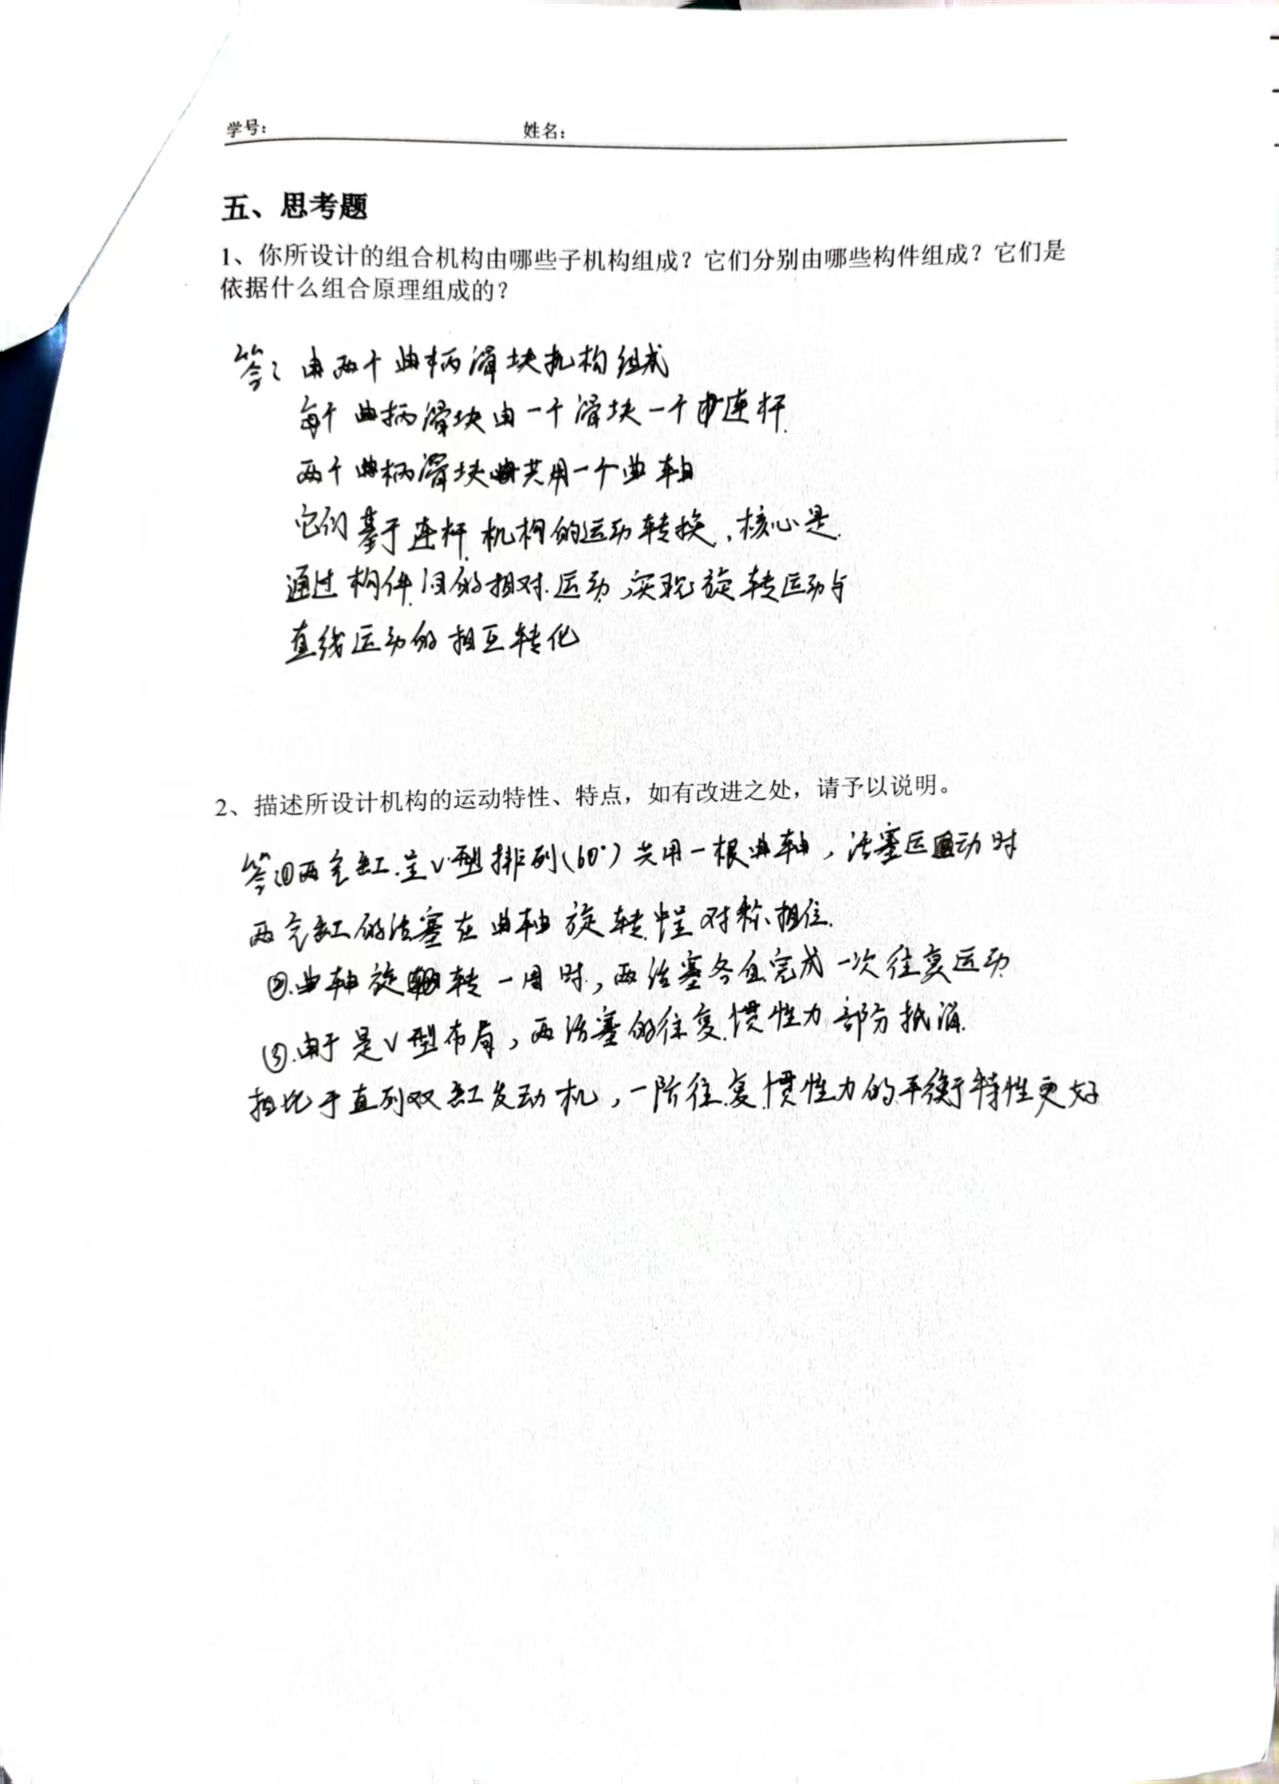 学号:
姓名:
五、思考题
1、你所设计的组合机构由哪些子机构组成？它们分别由哪些构件组成？它们是
依据什么组合原理组成的？
答：由两个曲柄滑块机构组成
每个曲柄滑块由一个滑块一个连杆
两个曲柄滑块共用一个曲轴
它们基于连杆机构的运动转换，核心是
通过构件间的相对运动，实现旋转运动与
直线运动的相互转化
2、描述所设计机构的运动特性、特点，如有改进之处，请予以说明。
答①两气缸呈V型排列(60°)共用一根曲轴，活塞运动时
两气缸的活塞在曲轴旋转中呈对称相位.
②.曲轴旋转一周时，两活塞各自完成一次往复运动
③.由于是V型布局，两活塞的往复惯性力部分抵消.
相比于直列双缸发动机，一阶往复惯性力的平衡特性更好